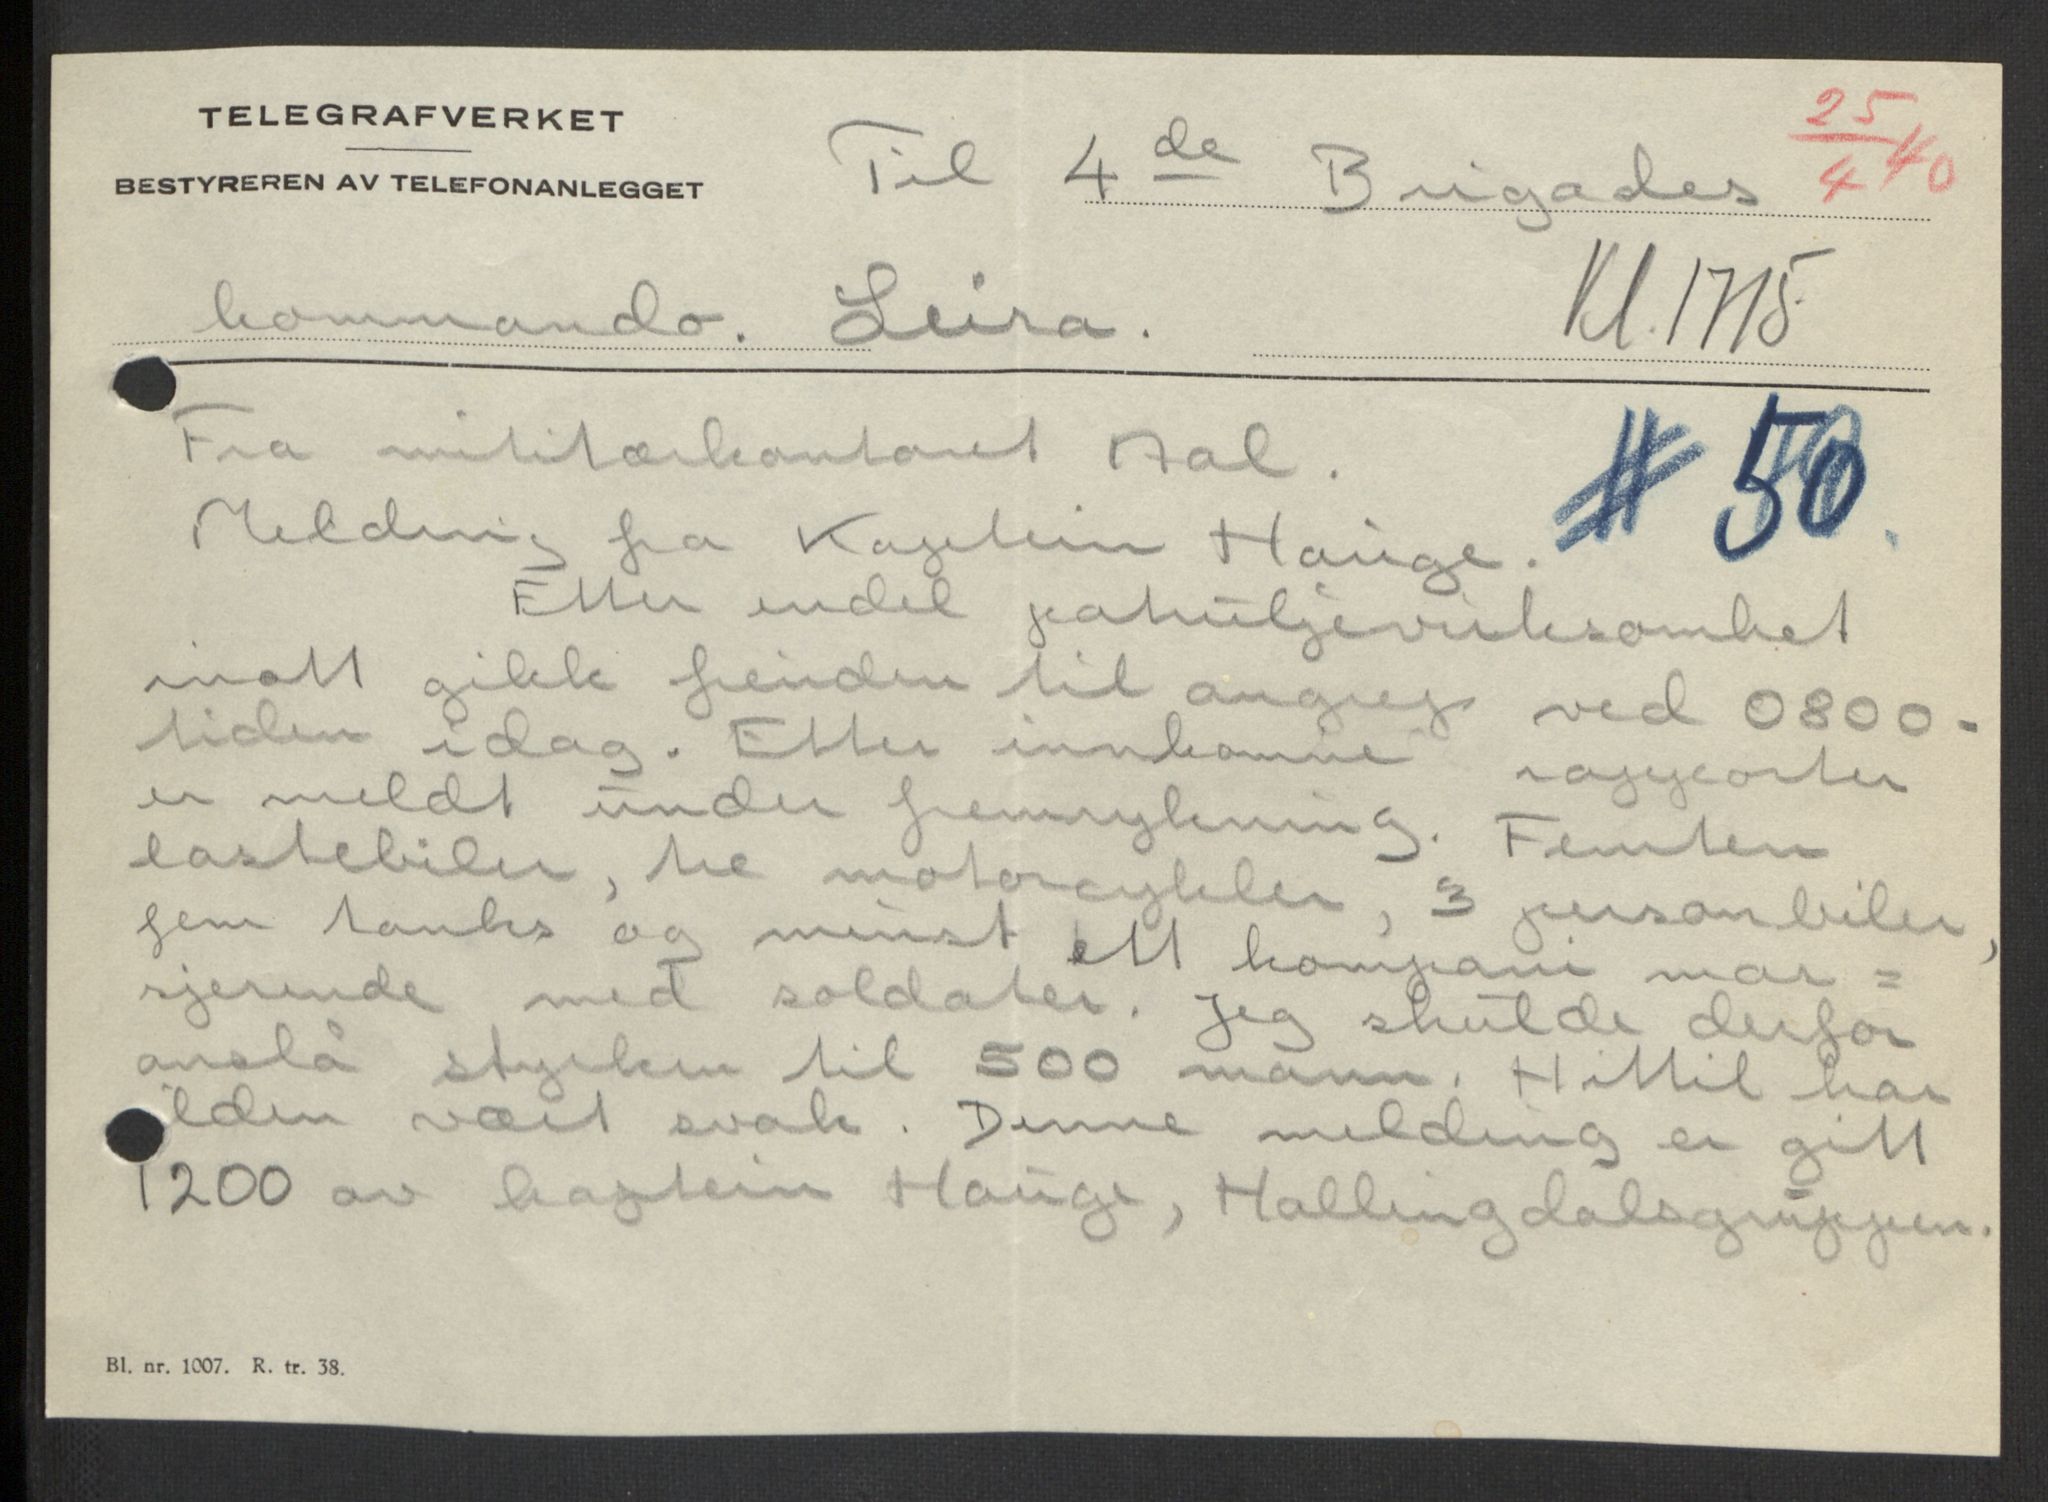 TELEGRAFVERKET
BESTYREREN AV TELEFONANLEGGET
25/4 40
Til 4de Brigades
kommando. Leira.
Kl. 1715
Fra militærkontoret Aal.
# 50.
Melding fra Kaptein Hauge.
Etter endel patruljevirksomhet
inatt gikk fienden til angrep ved 0800-
tiden idag. Etter innkomne rapporter
er meldt under fremrykning. Femten
lastebiler, tre motorcykler, 3 personbiler,
fem tanks og minst ett kompani mar=
sjerende med soldater. Jeg skulde derfor
anslå styrken til 500 mann. Hittil har
ilden vært svak. Denne melding er gitt
1200 av kaptein Hauge, Hallingdalsgruppen.
Bl. nr. 1007. R. tr. 38.